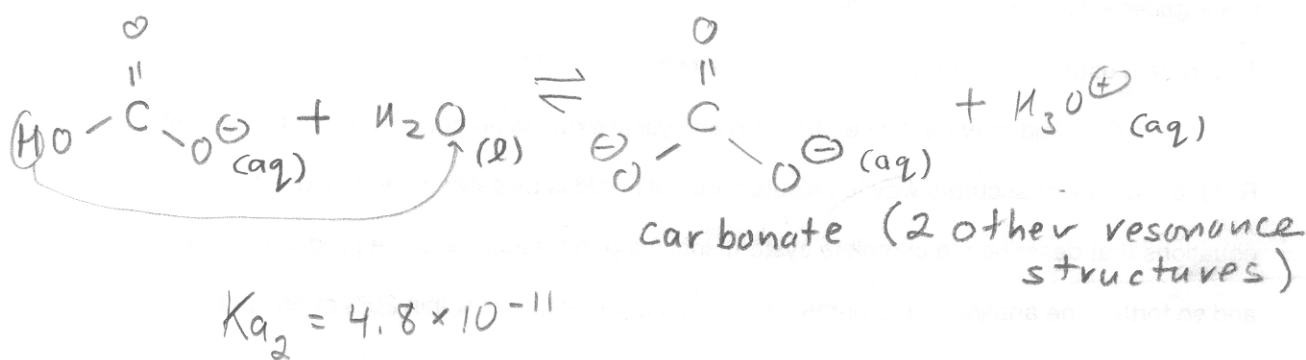 O O
|| ||
HO C O⊖ (aq) + H2O (l) ⇌ ⊖O C O⊖ (aq) + H3O⊕ (aq)
carbonate (2 other resonance
structures)
Ka2 = 4.8 × 10^-11